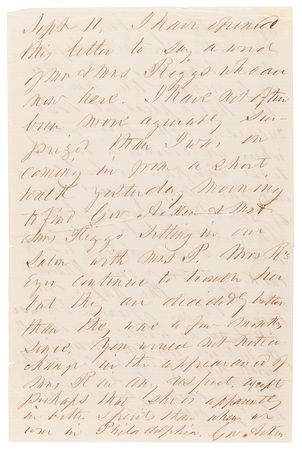 Sept 11. I have opened
this letter to say a word
of Mr & Mrs Riggs who are
now here. I have not often
been more agreeably sur-
prized than I was on
coming in from a short
walk yesterday morning
to find Gov Aiken & Mr &
Mrs Riggs sitting in our
salon with Mrs P. Mrs R's
eyes continue to trouble her
but they are decidedly better
than they were a few months
since. You would not notice
change in the appearance of
Mrs R in any respect, except
perhaps that she is apparently
in better spirits than when we
were in Philadelphia. Gov Aiken